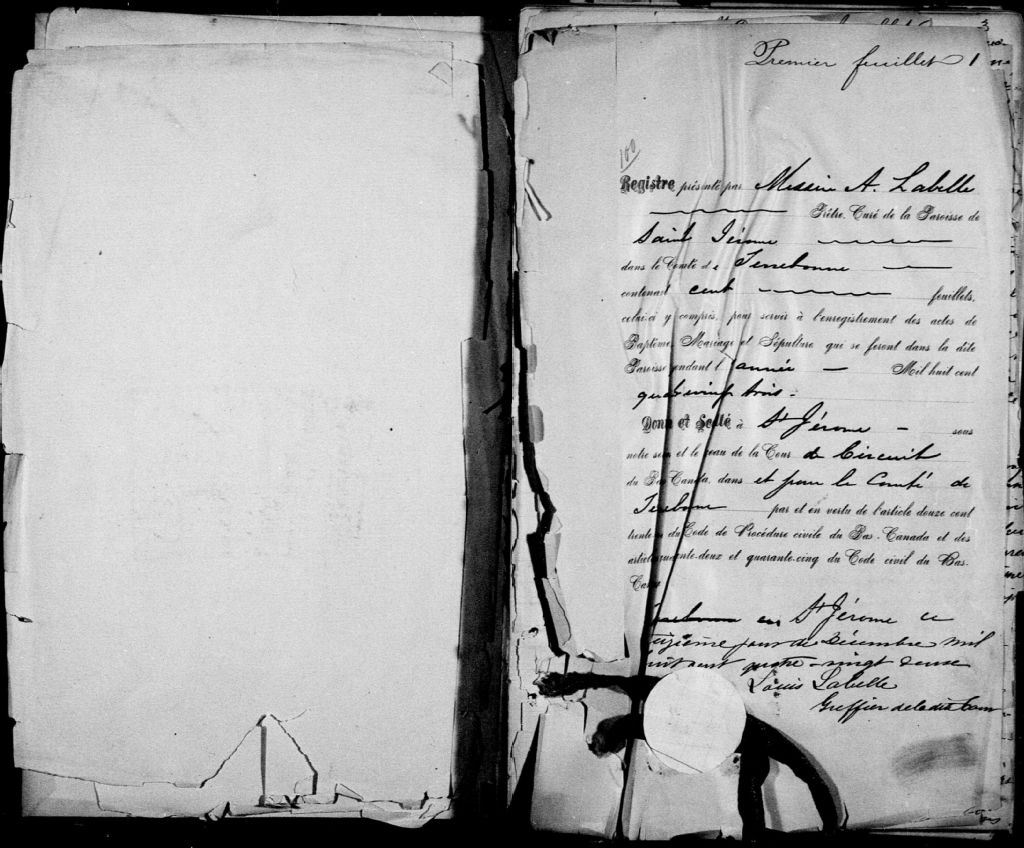 Premier feuillet 1
100
Registre présenté par Messire A. Labelle
Prêtre, Curé de la Paroisse de
Saint Jérome
dans le Comté de Terrebonne
contenant cent feuillets,
celui-ci y compris, pour servir à l'enregistrement des actes de
Baptême, Mariage et Sépulture qui se feront dans la dite
Paroisse pendant l'année Mil huit cent
quatrevingt trois.
Donné et Scellé à St Jérome sous
notre seing et le sceau de la Cour de Circuit
du Bas Canada, dans et pour le Comté de
Terrebonne par et en vertu de l'article douze cent
du Code de Procédure civile du Bas-Canada et des
articles quarante-deux et quarante-cinq du Code civil du Bas-
Terrebonne en St Jérome ce
jour de Décembre mil
huit cent quatre-vingt deux
Louis Labelle
Greffier de la dite Cour